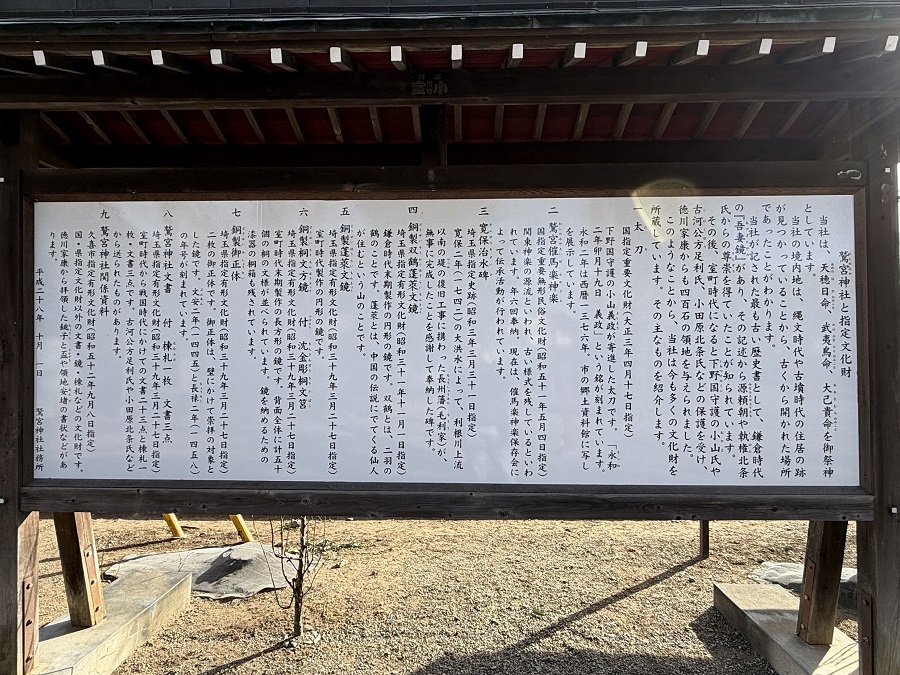 鷲宮神社と指定文化財
当社は、天穂日命、武夷鳥命、大己貴命を御祭神
としています。
当社の境内地は、縄文時代や古墳時代の住居の跡
が見つかっていることから、古くから開かれた場所
であったことがわかります。
当社が記された最も古い歴史書として、鎌倉時代
の『吾妻鏡』があり、その記述から源頼朝や執権北条
氏からの尊崇を得ていたことが知られています。
その後、室町時代になると下野国守護の小山氏や
古河公方足利氏、小田原北条氏などの保護を受け、
徳川家康からも四百石の領地を与えられました。
このようなことから、当社は今も多くの文化財を
所蔵しています。その主なものを紹介します。
一 太刀
国指定重要文化財(大正三年四月十七日指定)
下野国守護の小山義政が寄進した太刀です。「永和
二年卯月十九日 義政」という銘が刻まれています。
永和二年は西暦一三七六年、市の郷土資料館で写し
を展示しています。
二 鷲宮催馬楽神楽
国指定重要無形民俗文化財(昭和五十一年五月四日指定)
関東神楽の源流といわれ、古い様式を残しているといわ
れています。年六回奉納、現在は、催馬楽神楽保存会に
よって伝承活動が行われています。
三 寛保治水碑
埼玉県指定史跡(昭和三年三月三十一日指定)
寛保二年(一七四二)の大洪水によって、利根川上流
以南の堤の復旧工事に携わった長州藩(毛利家)が、
無事に完成したことを感謝して奉納した碑です。
四 銅製双鶴蓬莱文鏡
埼玉県指定有形文化財(昭和三十一年十一月一日指定)
鎌倉時代末期製作の円形の鏡です。双鶴とは、二羽の
鶴のことです。蓬莱とは、中国の伝説にでてくる仙人
が住むという山のことです。
五 銅製蓬莱文鏡
埼玉県指定有形文化財(昭和三十九年三月二十七日指定)
室町時代製作の円形の鏡です。
六 銅製桐文方鏡 付 沈金彫桐文筥
埼玉県指定有形文化財(昭和三十九年三月二十七日指定)
室町時代末期製作の長方形の鏡です。背面全体に計五十
個の桐の文様が並べられています。鏡を納めるための
漆器の桐箱も残されています。
七 銅製御正体
埼玉県指定有形文化財(昭和三十九年三月二十七日指定)
二枚の御正体です。御正体は、壁にかけて崇拝の対象と
した鏡です。文安二年(一四四五)と長禄二年(一四五八)
の年号が刻まれています。
八 鷲宮神社文書 付 棟札一枚 文書三点
埼玉県指定有形文化財(昭和三十九年三月二十七日指定)
室町時代から戦国時代にかけての文書二十三点と棟札一
枚・文書三点です。古河公方足利氏や小田原北条氏など
から送られたものがあります。
九 鷲宮神社関係資料
久喜市指定有形文化財(昭和五十二年九月八日指定)
国・県指定文化財以外の文書・鏡・棟札などの文化財です。
徳川家康から拝領した銚子と盃や領地安堵の書状などがあ
ります。
平成二十八年 十月 一日 鷲宮神社社務所